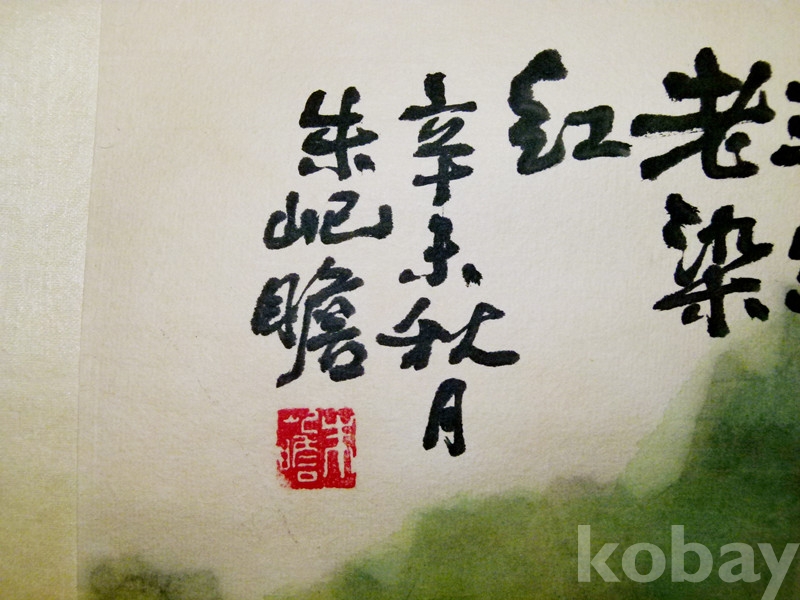 老染
红
辛未秋月
朱屺瞻
朱屺瞻
kobay